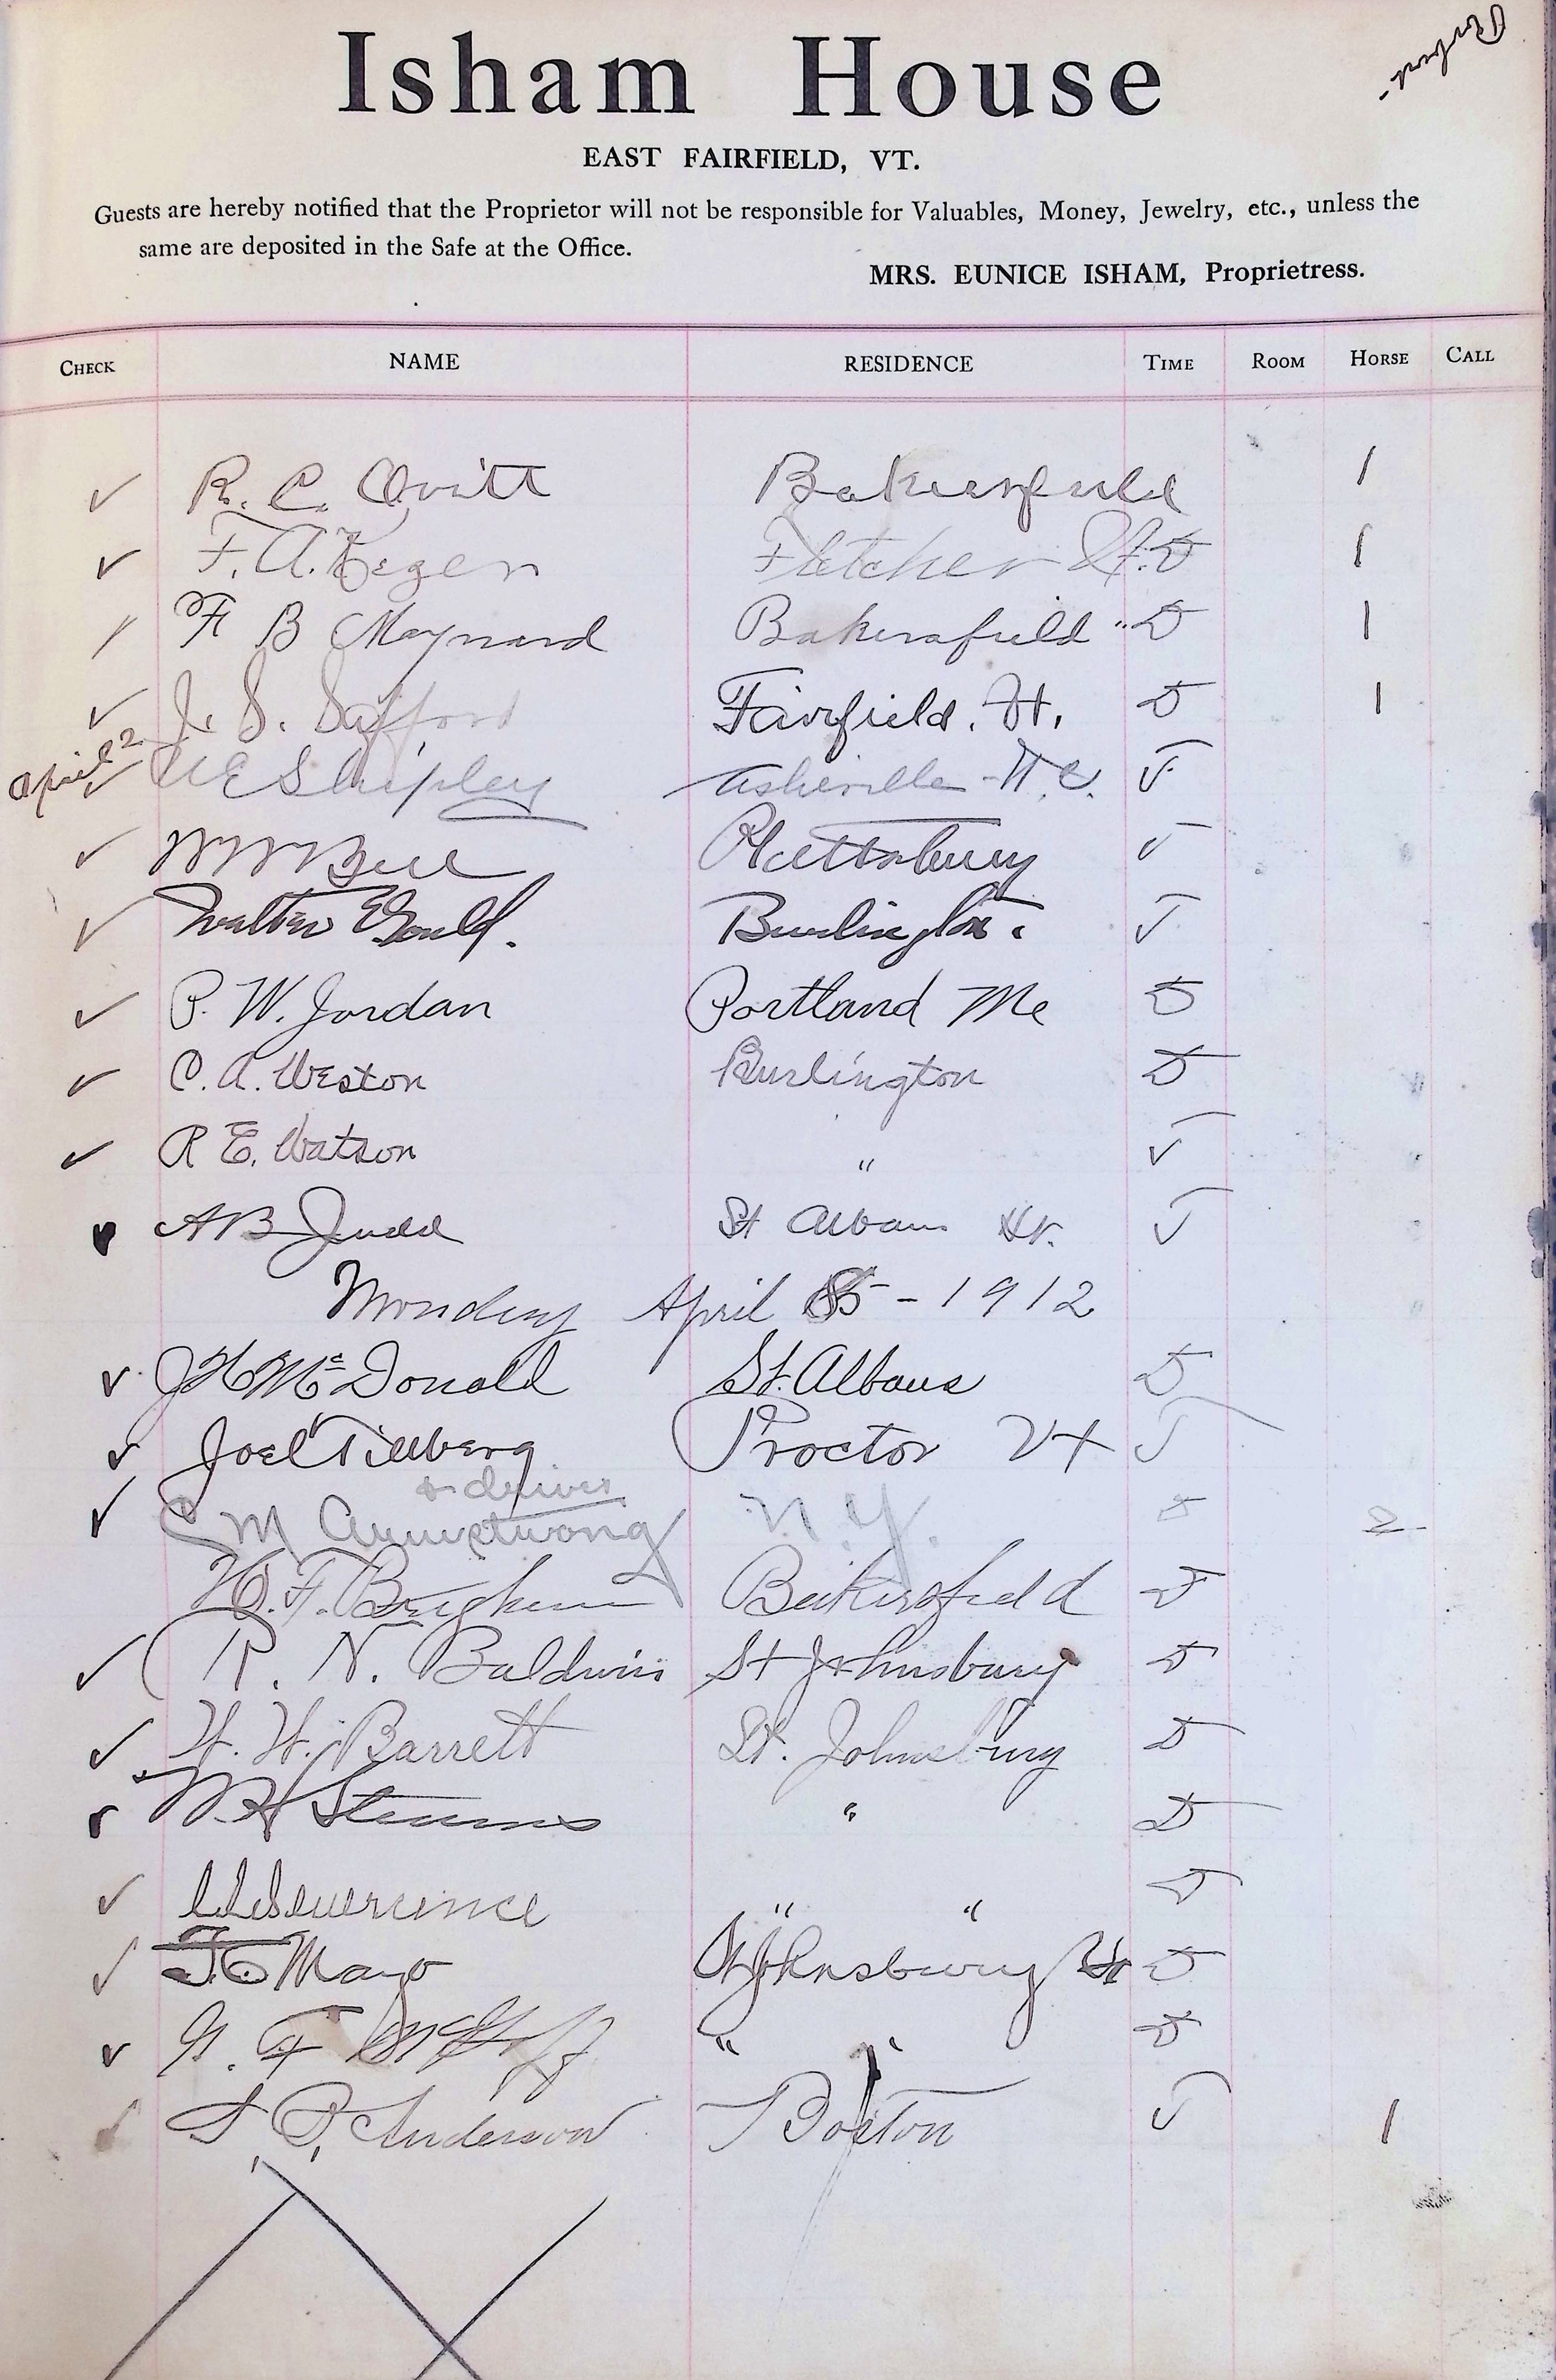 Isham House
EAST FAIRFIELD, VT.
Guests are hereby notified that the Proprietor will not be responsible for Valuables, Money, Jewelry, etc., unless the
same are deposited in the Safe at the Office.
MRS. EUNICE ISHAM, Proprietress.
CHECK NAME RESIDENCE TIME ROOM HORSE CALL
✓ R. C. Ovitt Bakersfield 1
✓ F. A. Kezer Fletcher Vt. D 1
/ F B Maynard Bakersfield " D 1
✓ J. S. Safford Fairfield. Vt. D 1
April 2 ✓ W E Shipley Asheville - N.C. ✓
✓ W W Bell Plattsburg ✓
✓ Walter E Gould. Burlington. ✓
✓ P. W. Jordan Portland Me D
✓ C. A. Weston Burlington D
✓ R E. Watson " ✓
✓ A B Judd St Albans Vt. ✓
Monday April 5 - 1912
✓ J H McDonald St. Albans D
✓ Joel Tillberg Proctor Vt ✓
& driver
✓ S M Armstrong N.Y. D 2
H. F. Brigham Bakersfield D
✓ R. N. Baldwin St Johnsbury D
✓ H. H. Barrett St. Johnsbury D
✓ Stearns " D
✓ Severence " " D
✓ Mayo St Johnsbury Vt D
✓ G. F. " " D
✓ S. P. Anderson Boston ✓ 1